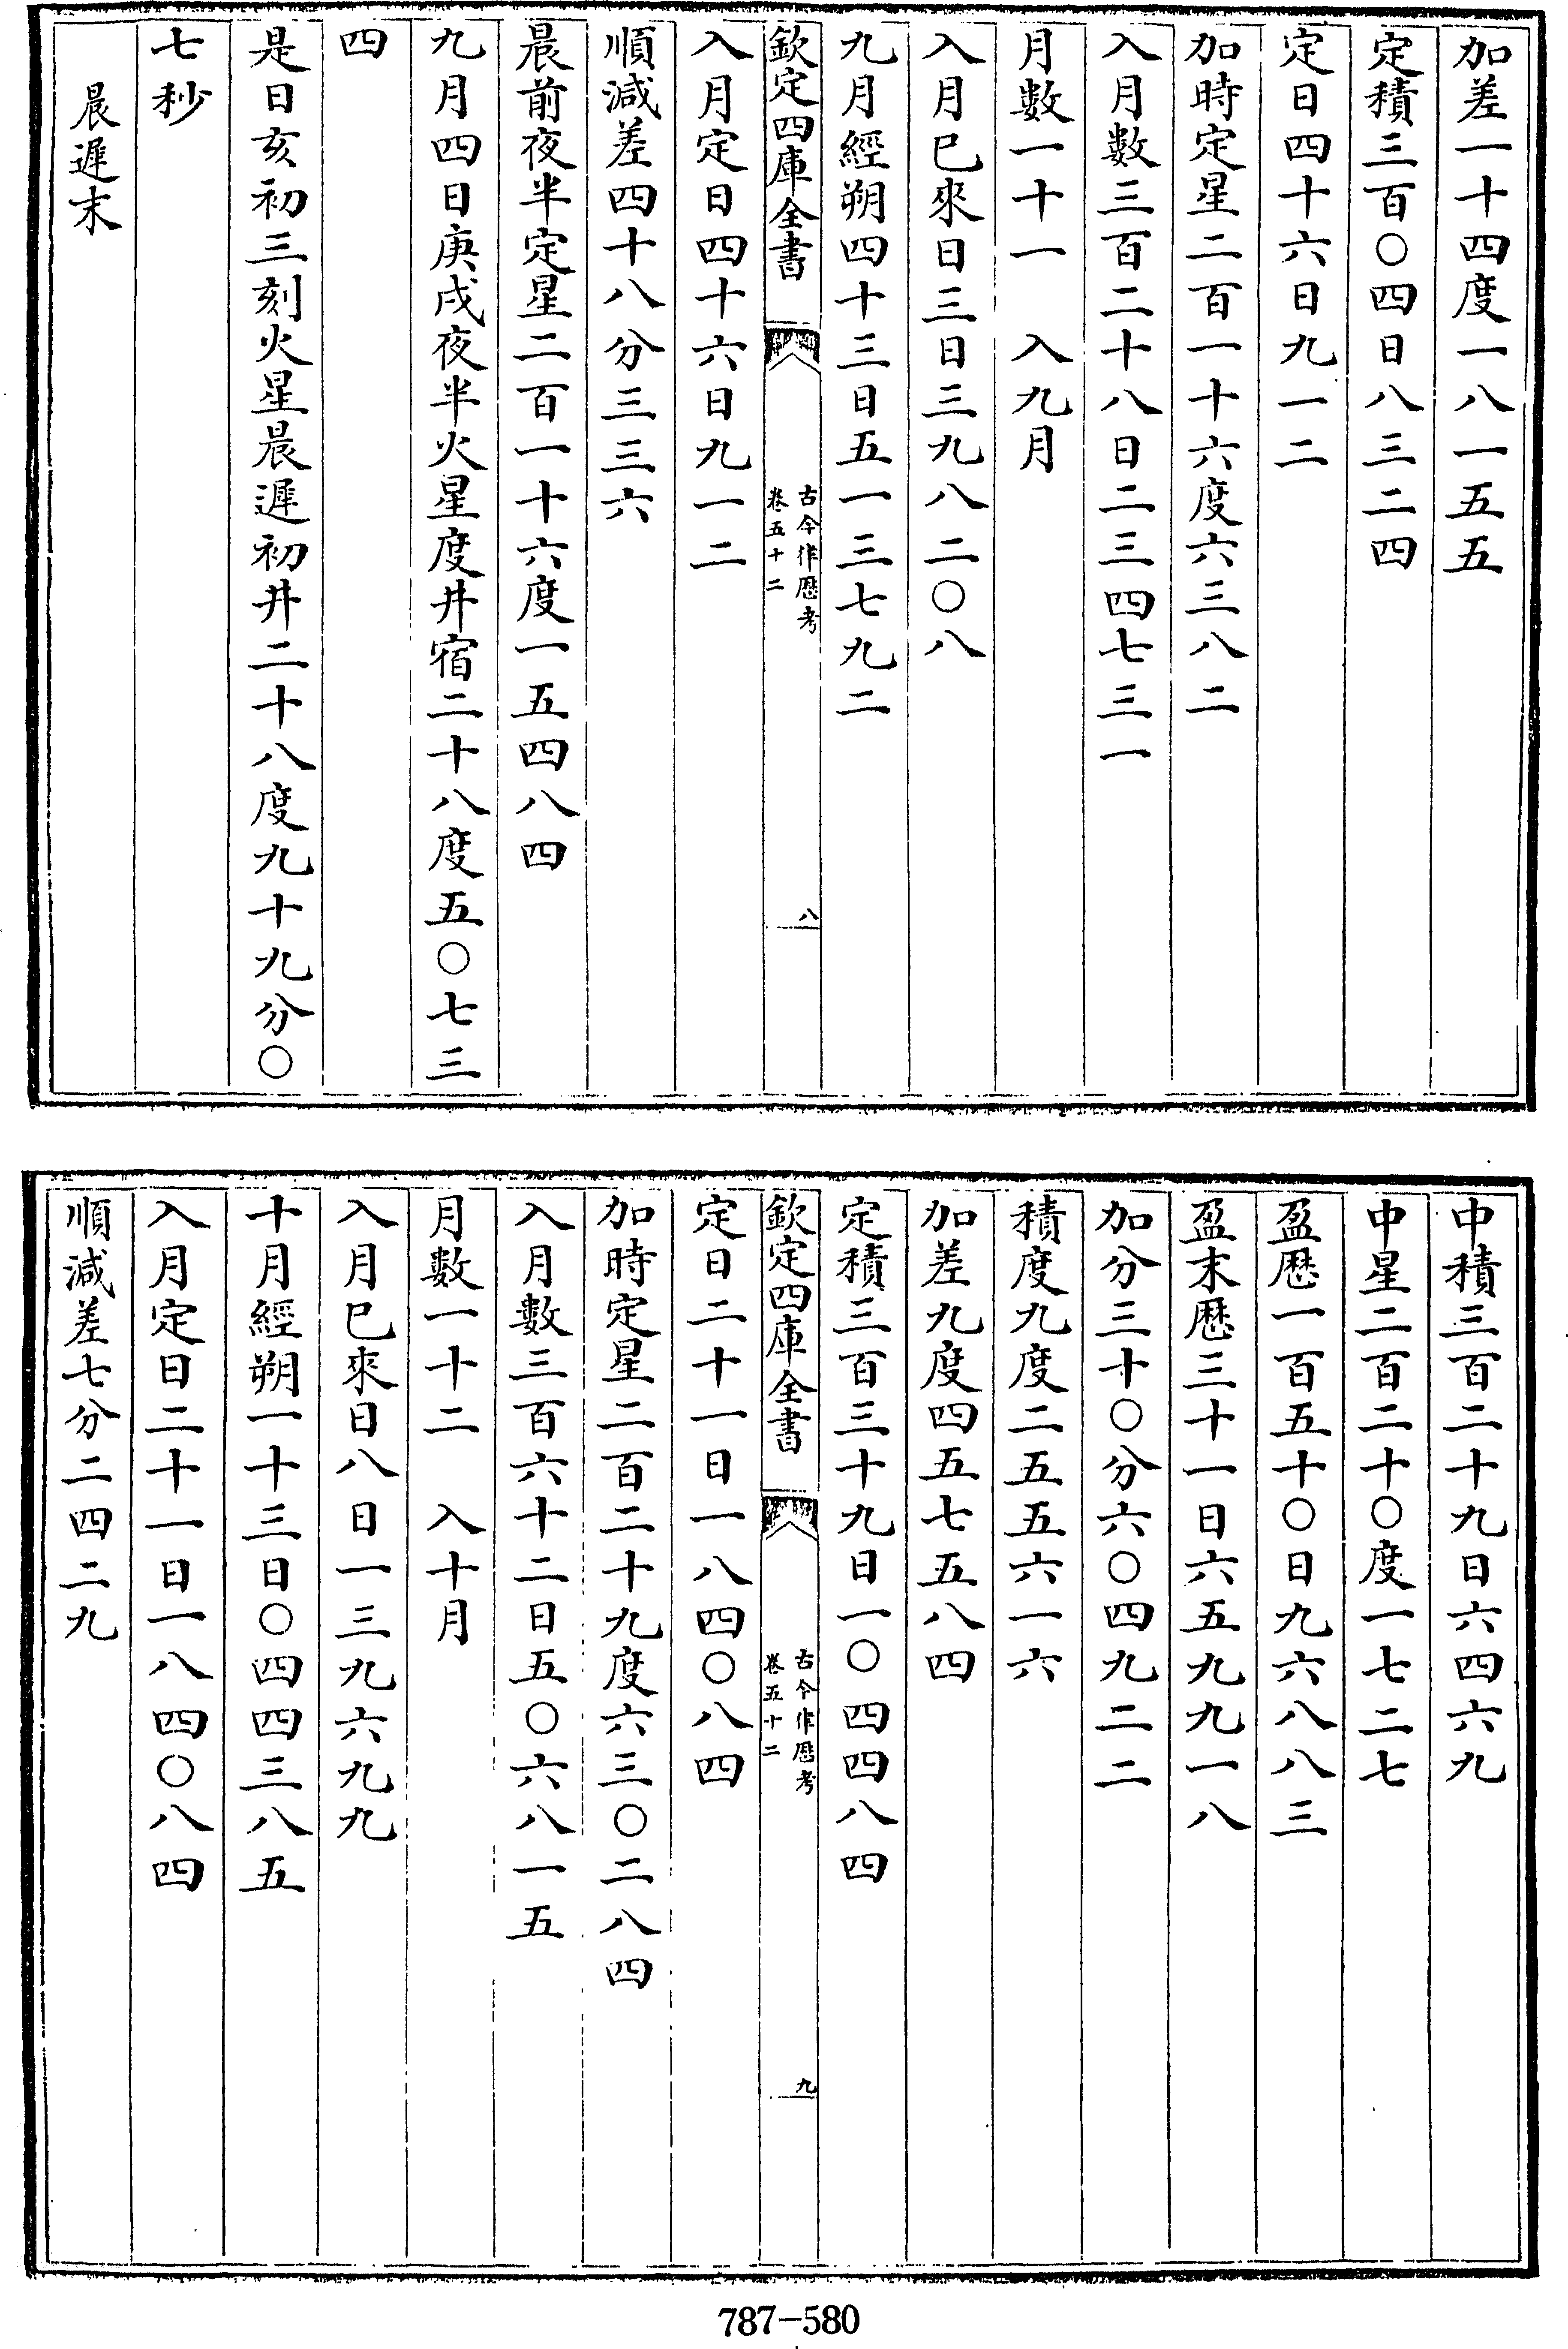 加差一十四度一八一五五
定積三百〇四日八三二四
定日四十六日九一二
加時定星二百一十六度六三八二
入月數三百二十八日二三四七三一
月數一十一　入九月
入月已來日三日三九八二〇八
九月經朔四十三日五一三七九二
欽定四庫全書
古今律歷考
卷五十二
八
入月定日四十六日九一二
順減差四十八分三三六
晨前夜半定星二百一十六度一五四八四
九月四日庚戌夜半火星度井宿二十八度五〇七三
四
是日亥初三刻火星晨遲初井二十八度九十九分〇
七秒
晨遲末
中積三百二十九日六四六九
中星二百二十〇度一七二七
盈歷一百五十〇日九六八八三
盈末歷三十一日六五九九一八
加分三十〇分六〇四九二二
積度九度二五五六一六
加差九度四五七五八四
定積三百三十九日一〇四四八四
欽定四庫全書
古今律歷考
卷五十二
九
定日二十一日一八四〇八四
加時定星二百二十九度六三〇二八四
入月數三百六十二日五〇六八一五
月數一十二　入十月
入月已來日八日一三九六九九
十月經朔一十三日〇四四三八五
入月定日二十一日一八四〇八四
順減差七分二四二九
787-580